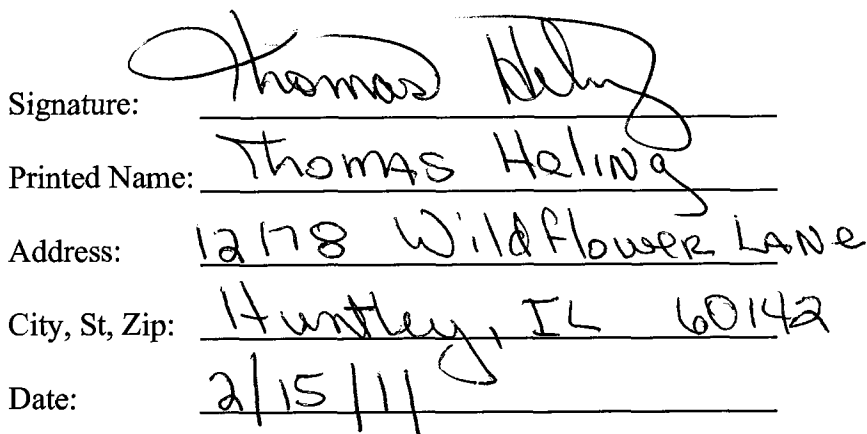 Signature: Thomas Heling
Printed Name: Thomas Heling
Address: 12178 Wildflower Lane
City, St, Zip: Huntley, IL 60142
Date: 2/15/11